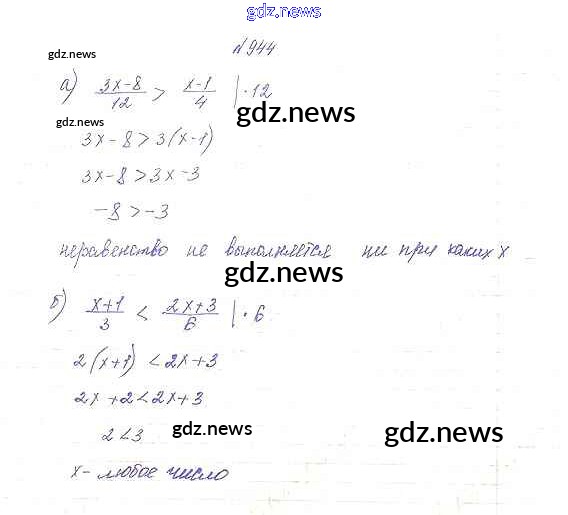 gdz.news
№ 944
gdz.news
а) (3x-8)/12 > (x-1)/4 | · 12
gdz.news
gdz.news
3x - 8 > 3(x-1)
3x - 8 > 3x - 3
-8 > -3
неравенство не выполняется ни при каких x
gdz.news
б) (x+1)/3 < (2x+3)/6 | · 6
2(x+1) < 2x+3
2x + 2 < 2x + 3
2 < 3
gdz.news
gdz.news
x - любое число